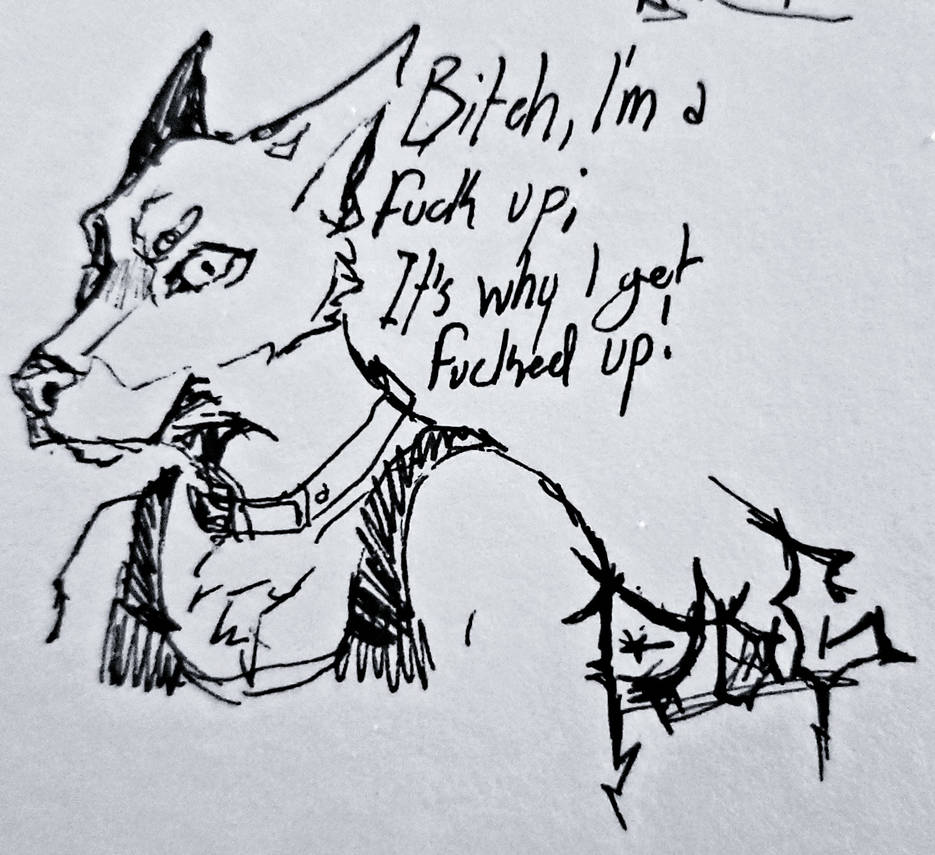 Bitch, I'm a
Fuck up;
It's why I get
Fucked up!